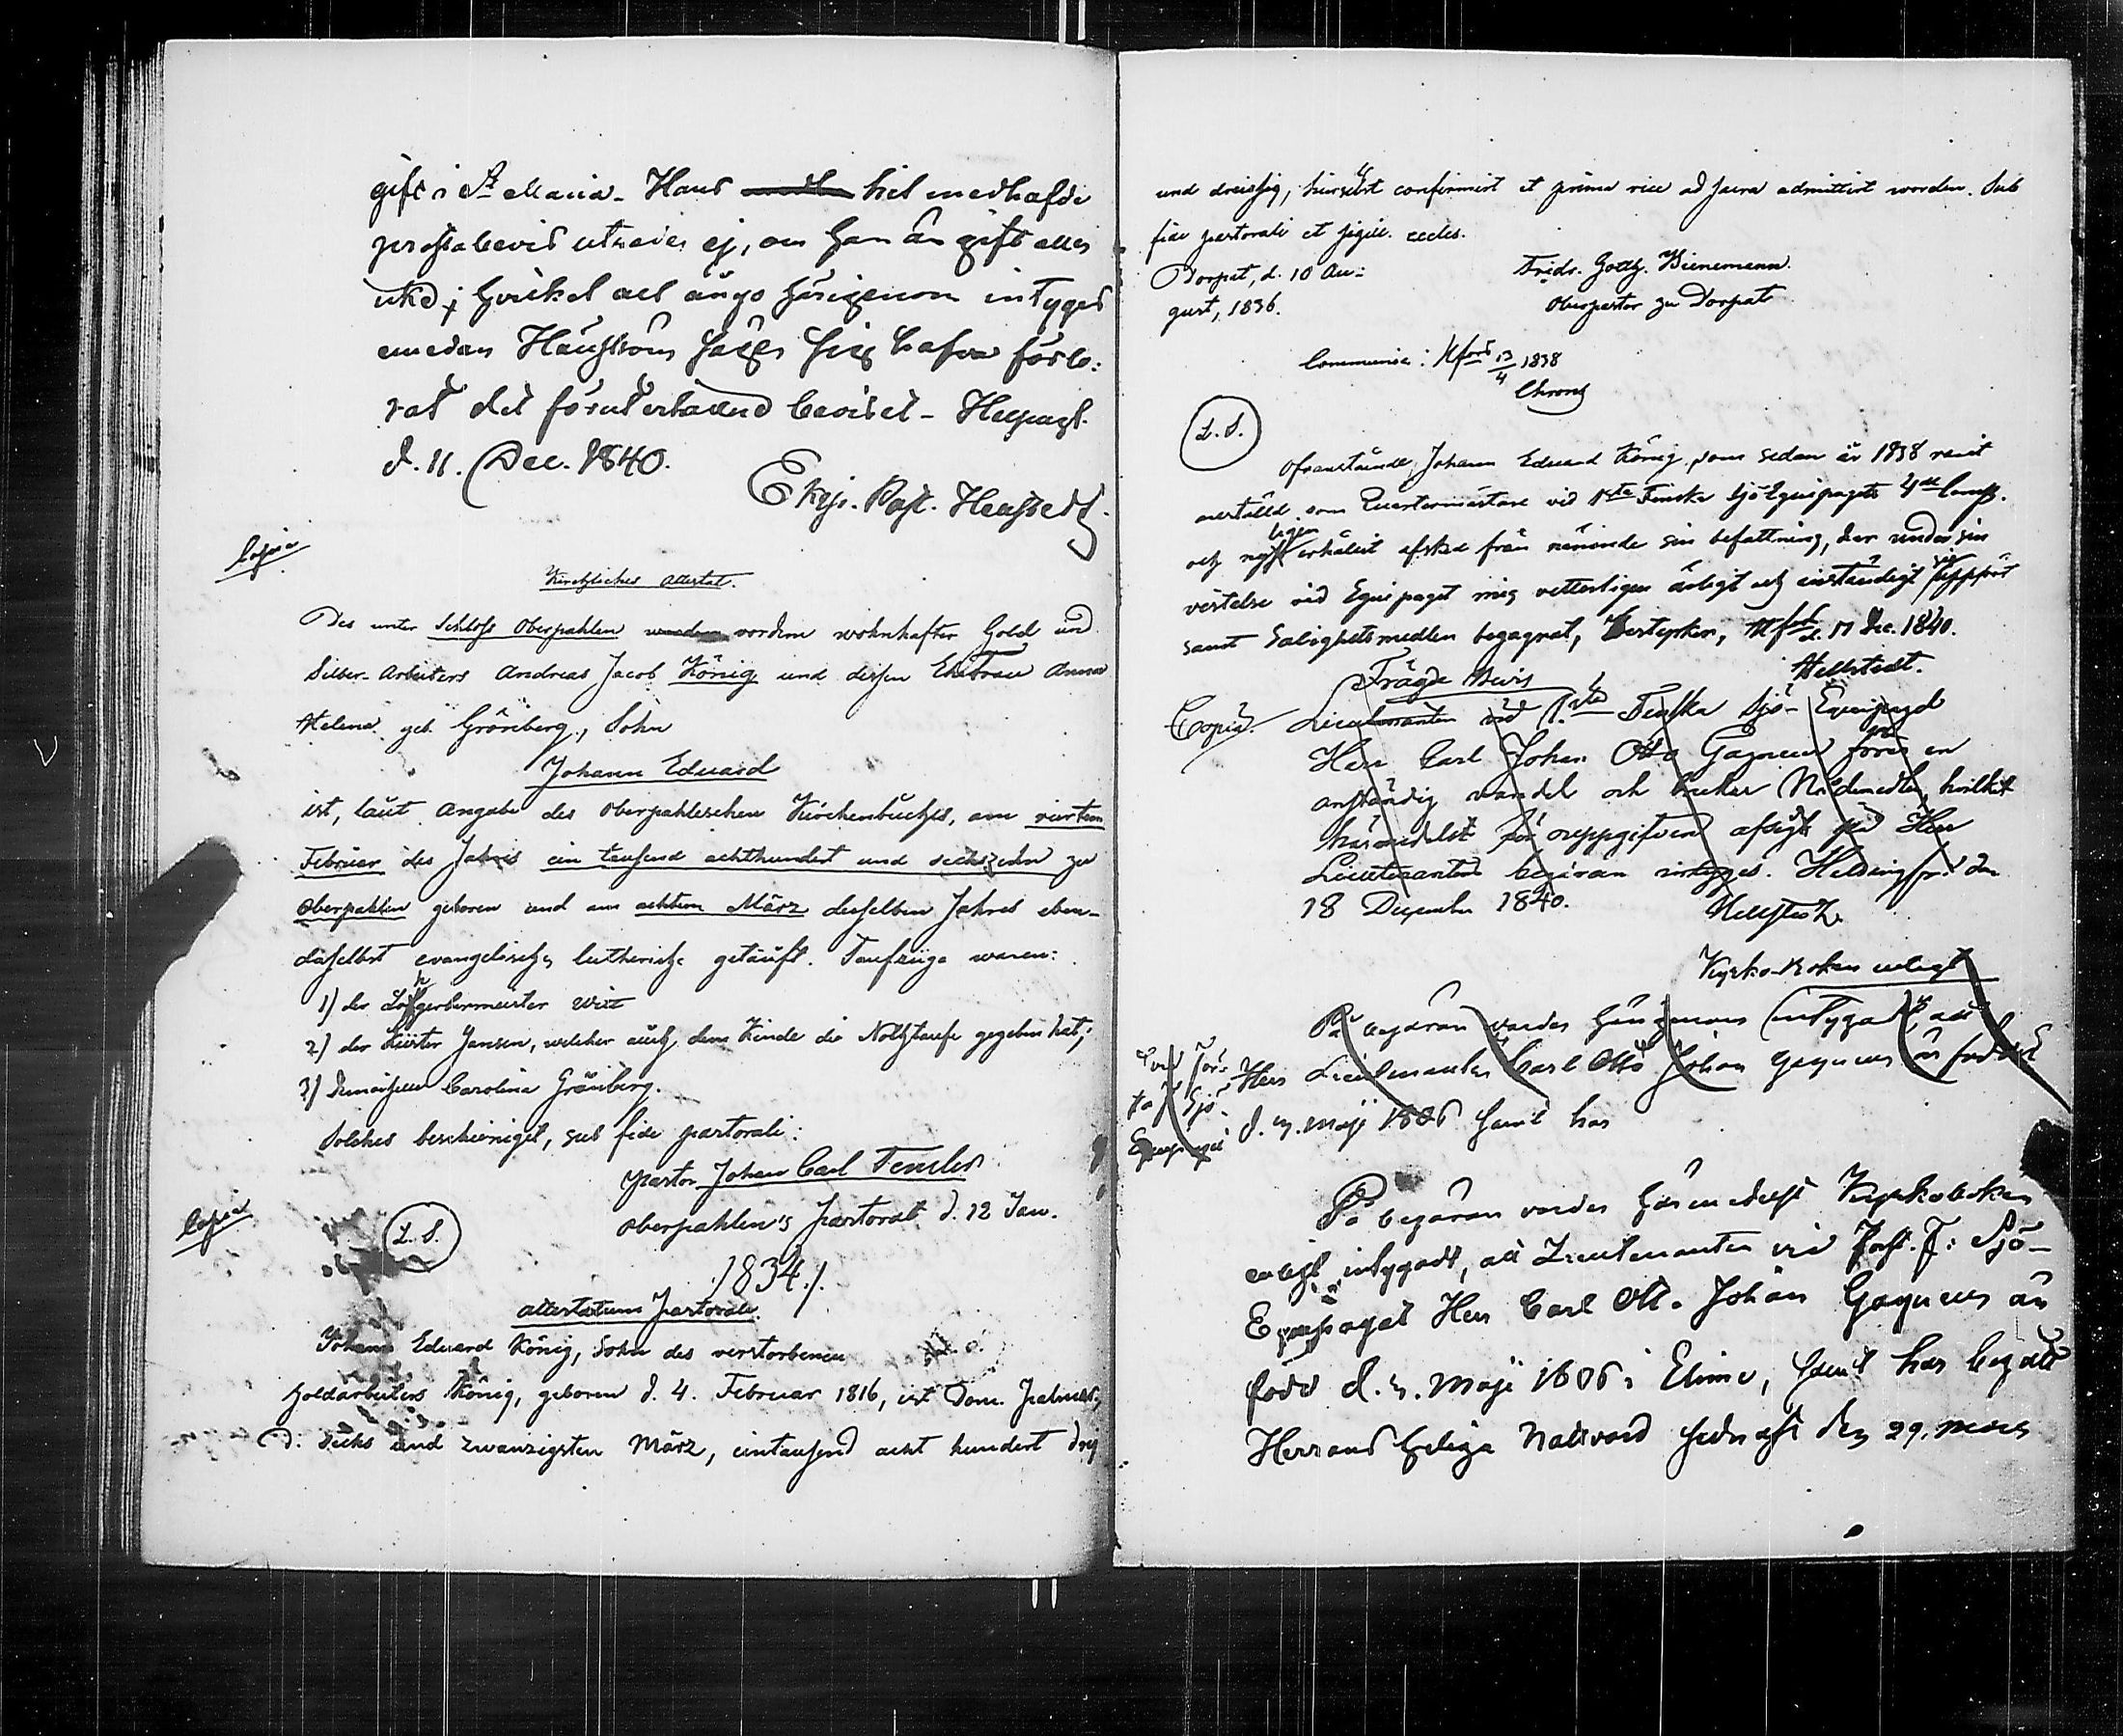 gift i St Maria. Hans hit medhafde
prestabevis utreder ej, om han är gift eller
icke; hvilket ock ännu härigenom intygas
emedan säges sig hafva förlo-
rat det förut erhållne beviset. Helsingf.
d. 11. Dec. 1840.
Copia
Kirchliches Attestat.
Des unter Schloss Oberpahlen vordem wohnhaften Gold und
Silber-Arbeiters Andreas Jacob König und dessen Ehefrau Anna
Helena geb. Grönberg, Sohn
Johann Eduard
ist, laut Angabe des Oberpahlenschen Kirchenbuches, am vierten
Februar des Jahres ein tausend achthundert und sechszehn zu
Oberpahlen geboren und am achten März desselben Jahres eben-
daselbst evangelisch lutherisch getauft. Taufzeuge waren:
1) der Lohgerbermeister
2) der Küster Jansen, welcher auch dem Kinde die Nothtaufe gegeben hat;
3) Demoiselle Carolina Grönberg.
Solches bescheiniget, sub fide pastorali:
Pastor Johann Carl
Oberpahlen's Pastorat d. 12 Jan.
1834./.
Copia
L. S.
Attestatum Pastorale.
Johann Eduard König, Sohn des verstorbenen
Goldarbeiters König, geboren d. 4. Februar 1816, ist Dom. Palmar.
d. sechs und zwanzigsten März, eintausend acht hundert drei
und dreissig, hierselbst confirmirt et prima vice ad sacra admittirt worden. Sub
fide pastorali et sigill. eccles.
Dorpat, d. 10 Au-
gust, 1836.
Fridr. Gotth. Bienemann
Oberpastor zu Dorpat
Communic: Hfors 13/4 1838
L. S.
Ofvanstående Johann Eduard König, som sedan år 1838 varit
anställd som Quartermästare vid 1sta Finska Sjö Equipagets 4de Comp.
och nyligen erhållit afsked från nämnde sin befattning, har under sin
vistelse vid Equipaget mig vetterligen ärligt och anständigt sig uppfört
samt Salighetsmedlen begagnat, Hfors d. 17 Dec. 1840.
Hellstedt.
Frägde Bevis
Copia. Lieutenanten vid 1sta Finska Sjö-Equipaget
Herr Carl Johan Otto Gagneus förer en
anständig vandel och brukar Nådemedlen, hvilket
härmedelst för ouppgifven afsigt på Herr
Lieutenantens begäran intygas. Helsingfors den
18 December 1840.
Hellstedt.
Kyrko-Boken enligt
På begäran varder härigenom intygadt, att
Herr Lieutenanten Carl Otto Johan Gagneus är född
d. 3. Maji 1806 samt har
vid För-
sta F. Sjö-
Equipaget
På begäran varder härmedelst Kyrkoboken
enligt intygadt, att Lieutenanten vid Först. F: Sjö-
Equipaget Herr Carl Otto Johan Gagneus är
född d. 3. Maji 1806 i Elimä, samt har begått
Herrans heliga Nattvard sednast den 29. Mars